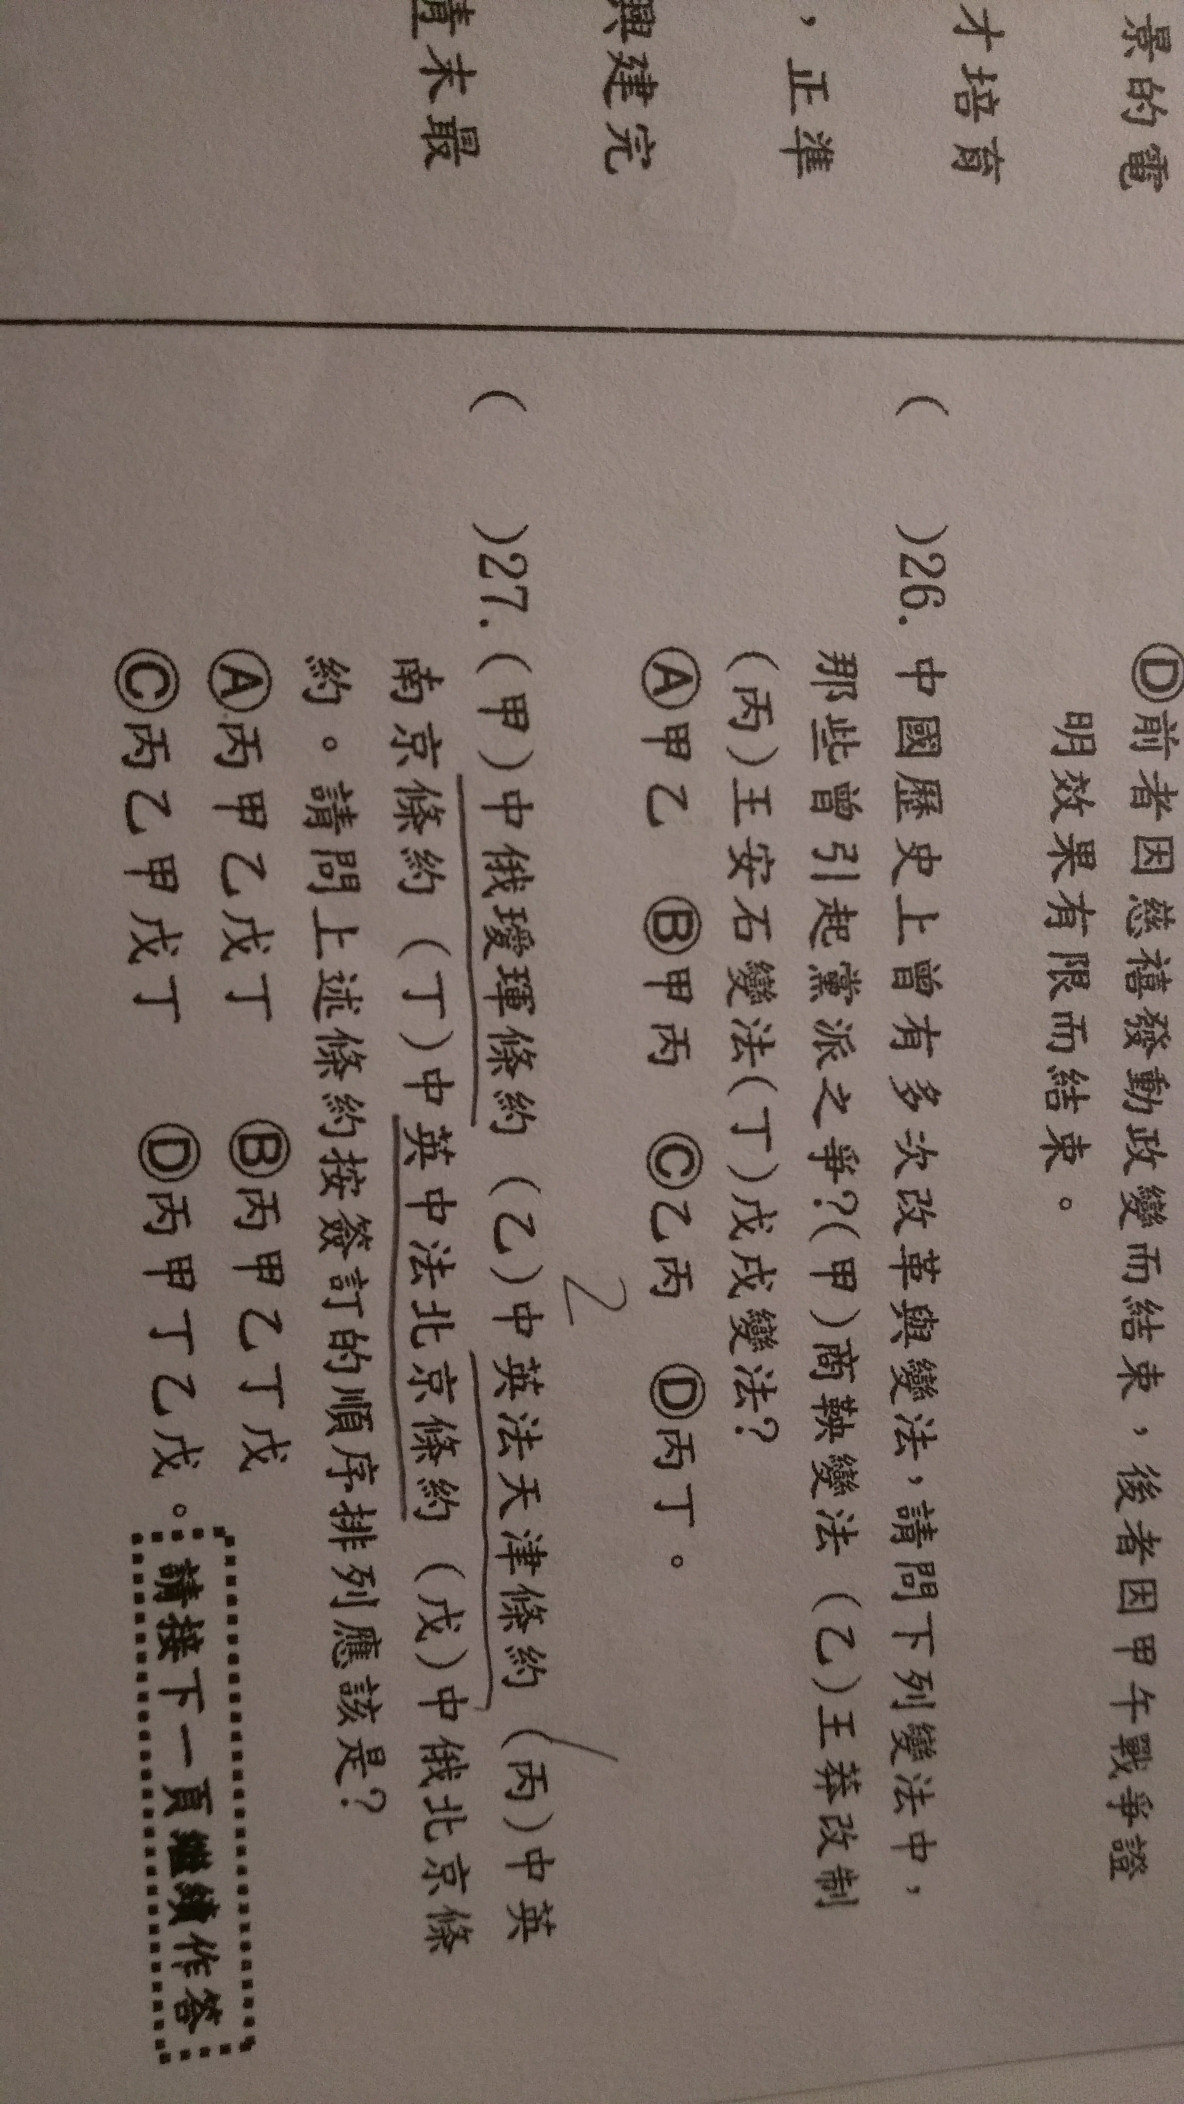 景的電
才培育
，正準
興建完
清末最
Ⓓ前者因慈禧發動政變而結束，後者因甲午戰爭證
明效果有限而結束。
(　)26.中國歷史上曾有多次改革與變法，請問下列變法中，
那些曾引起黨派之爭?(甲)商鞅變法 (乙)王莽改制
(丙)王安石變法(丁)戊戌變法?
Ⓐ甲乙 Ⓑ甲丙 Ⓒ乙丙 Ⓓ丙丁。
2
(　)27.(甲)中俄璦琿條約 (乙)中英法天津條約 (丙)中英
南京條約 (丁)中英中法北京條約 (戊)中俄北京條
約。請問上述條約按簽訂的順序排列應該是?
Ⓐ丙甲乙戊丁 Ⓑ丙甲乙丁戊
Ⓒ丙乙甲戊丁 Ⓓ丙甲丁乙戊。
請接下一頁繼續作答